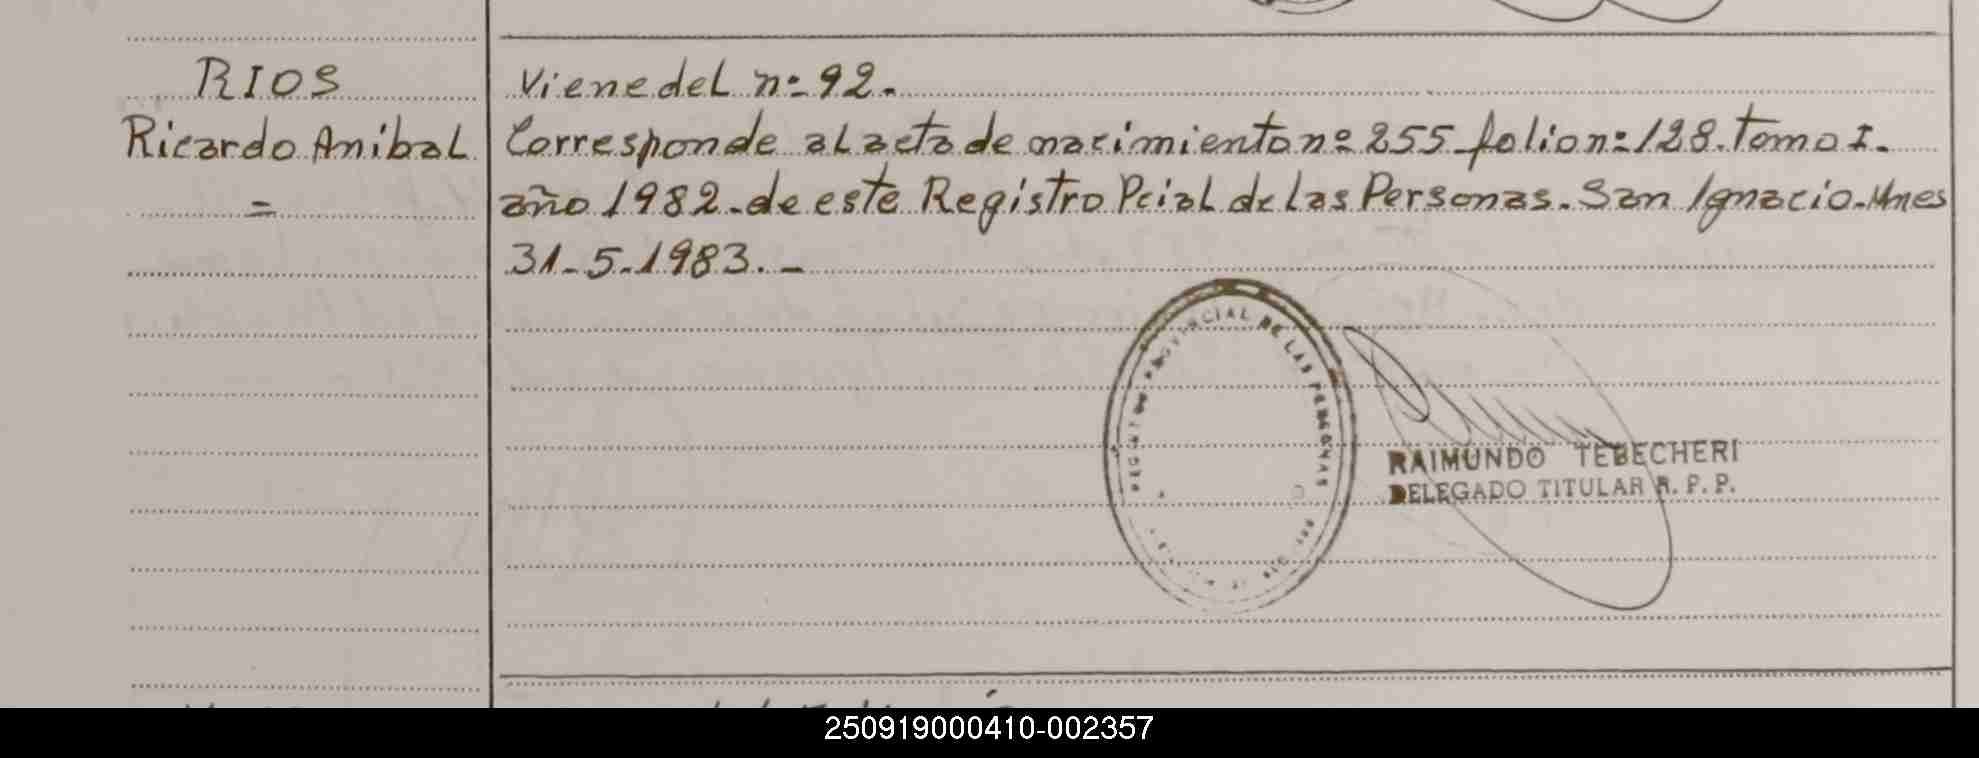 RIOS
Ricardo Anibal
=
Viene del nº 92.
Corresponde al acta de nacimiento nº 255 folio nº 128. tomo I.
año 1982. de este Registro Pcial de las Personas. San Ignacio. Mnes
31-5-1983. -
REGISTRO PROVINCIAL DE LAS PERSONAS
RAIMUNDO TEBECHERI
DELEGADO TITULAR R. P. P.
250919000410-002357